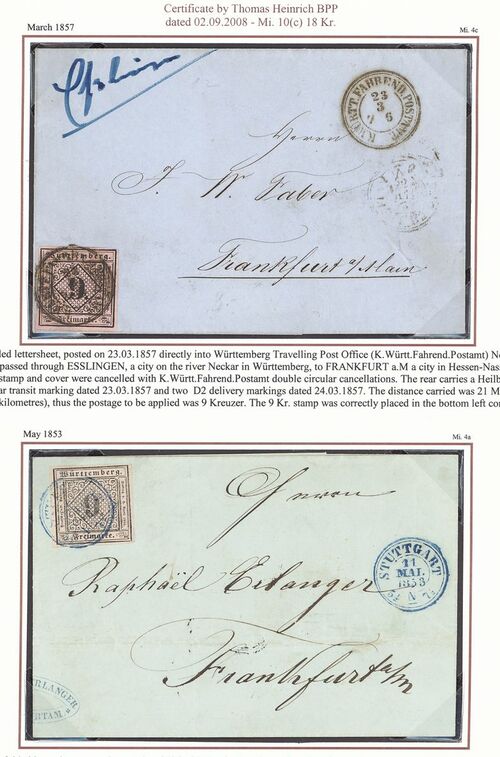 Certificate by Thomas Heinrich BPP
dated 02.09.2008 - Mi. 10(c) 18 Kr.
March 1857
Mi. 4c
K.WÜRTT.FAHREND.POSTAMT
23
3
6
Herrn
J. W. Faber
Frankfurt a/Main
9
Freimarke.
led lettersheet, posted on 23.03.1857 directly into Württemberg Travelling Post Office (K.Württ.Fahrend.Postamt) No
passed through ESSLINGEN, a city on the river Neckar in Württemberg, to FRANKFURT a.M a city in Hessen-Nas
stamp and cover were cancelled with K.Württ.Fahrend.Postamt double circular cancellations. The rear carries a Heilb
ar transit marking dated 23.03.1857 and two D2 delivery markings dated 24.03.1857. The distance carried was 21 M
kilometres), thus the postage to be applied was 9 Kreuzer. The 9 Kr. stamp was correctly placed in the bottom left cor
May 1853
Mi. 4a
Württemberg.
9
Freimarke.
Herrn
STUTTGART
21
MAI.
1853
N
Raphaël Erlanger
Frankfurt a/m
ERLANGER